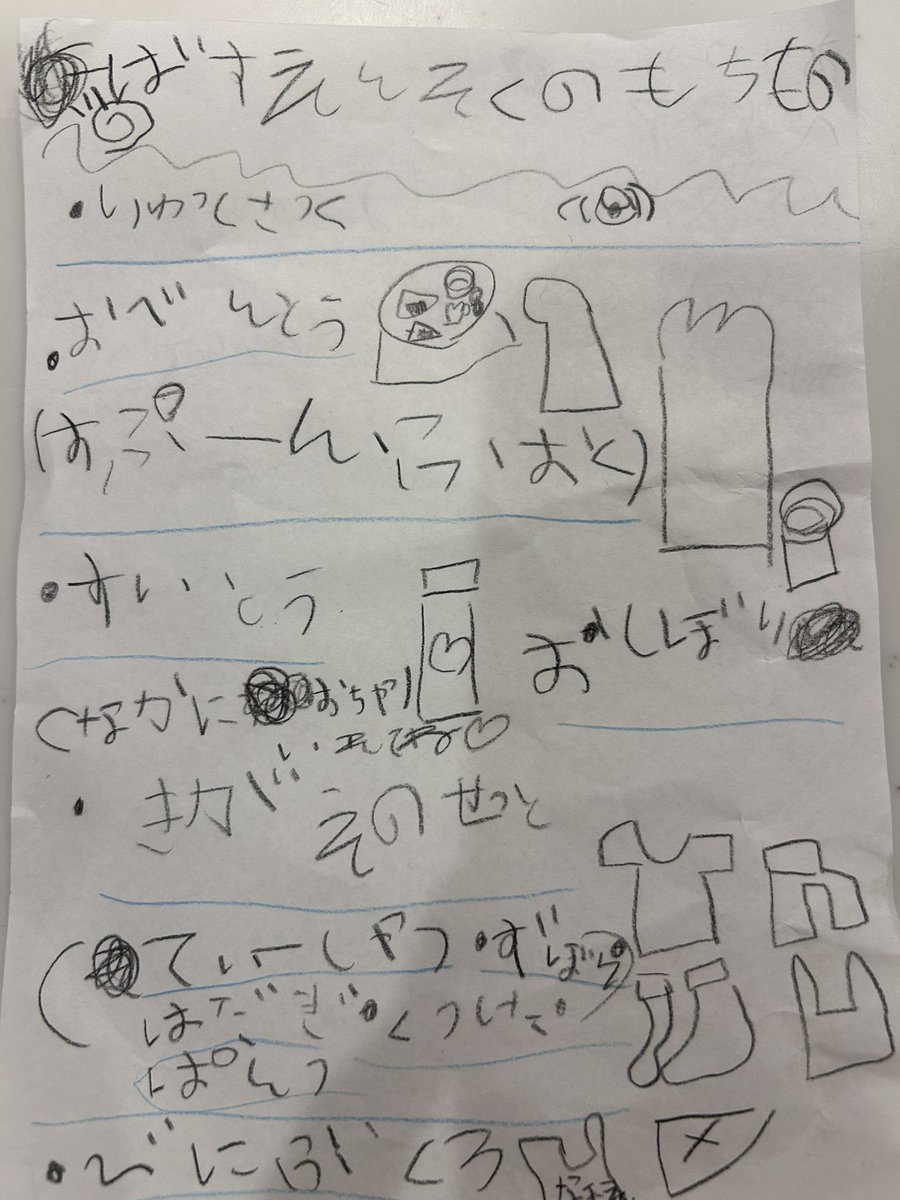 ばすえんそくのもちもの
・りゅっくさっく
・おべんとう
(すぷーんいこ、おく)
・すいとう
おしぼり
(なかにおちゃ)
・きがえのせっと
(てぃーしゃつ・ずぼん)
はだぎ・くつした
ぱんつ
・びにぶくろ